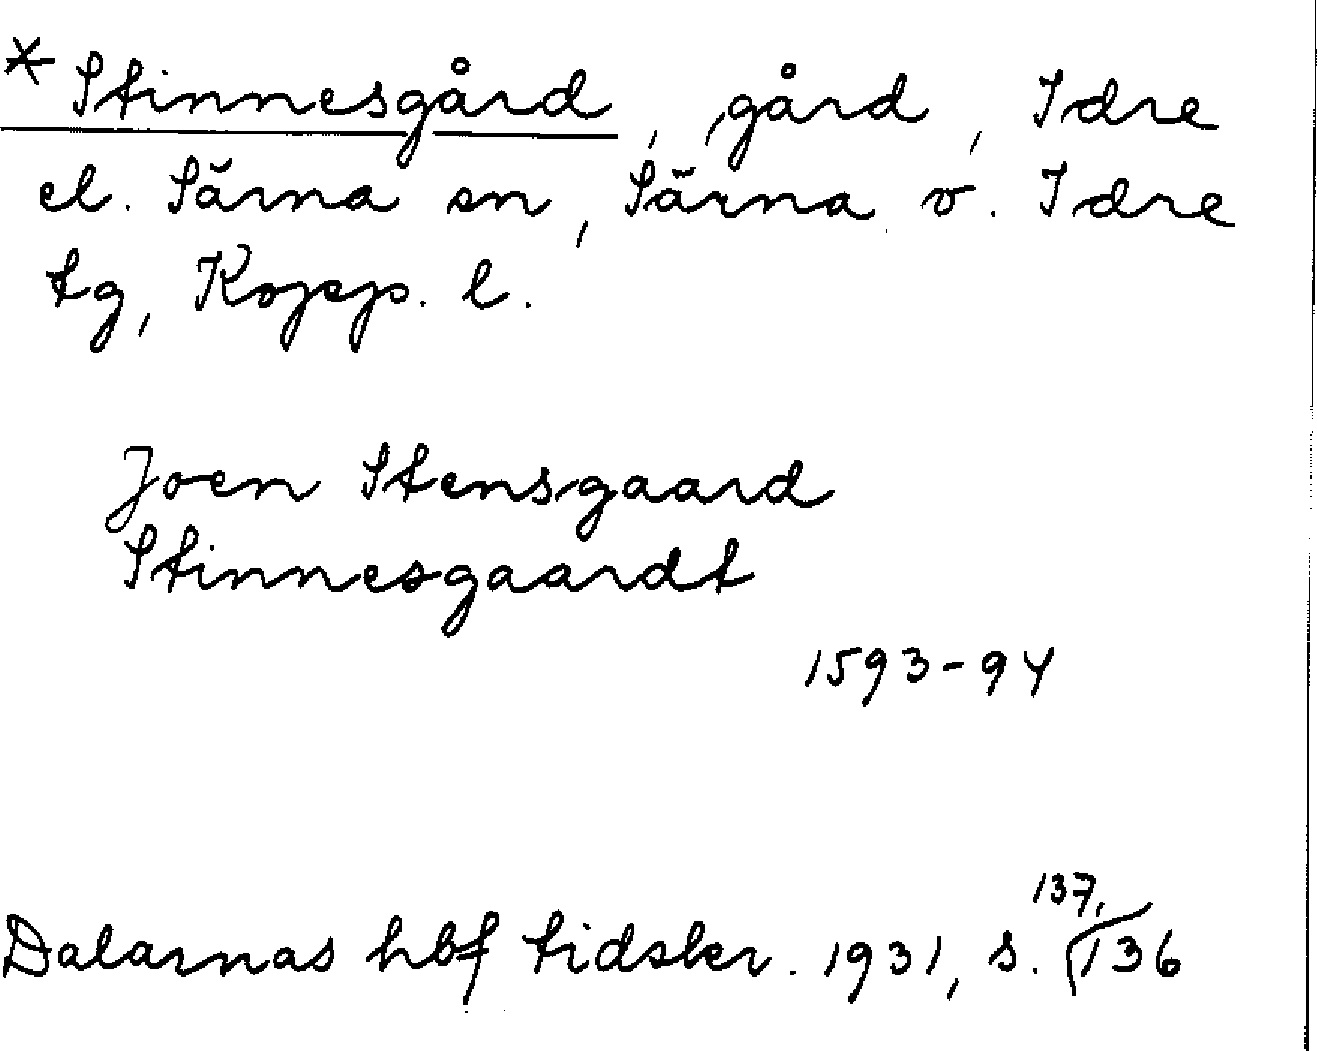 * Stinnesgård, gård, Idre
el. Särna sn, Särna o. Idre
tg, Kopp. l.
Joen Stensgaard
Stinnesgaardt
1593-94
Dalarnas hbf tidskr. 1931, s. 137, 136